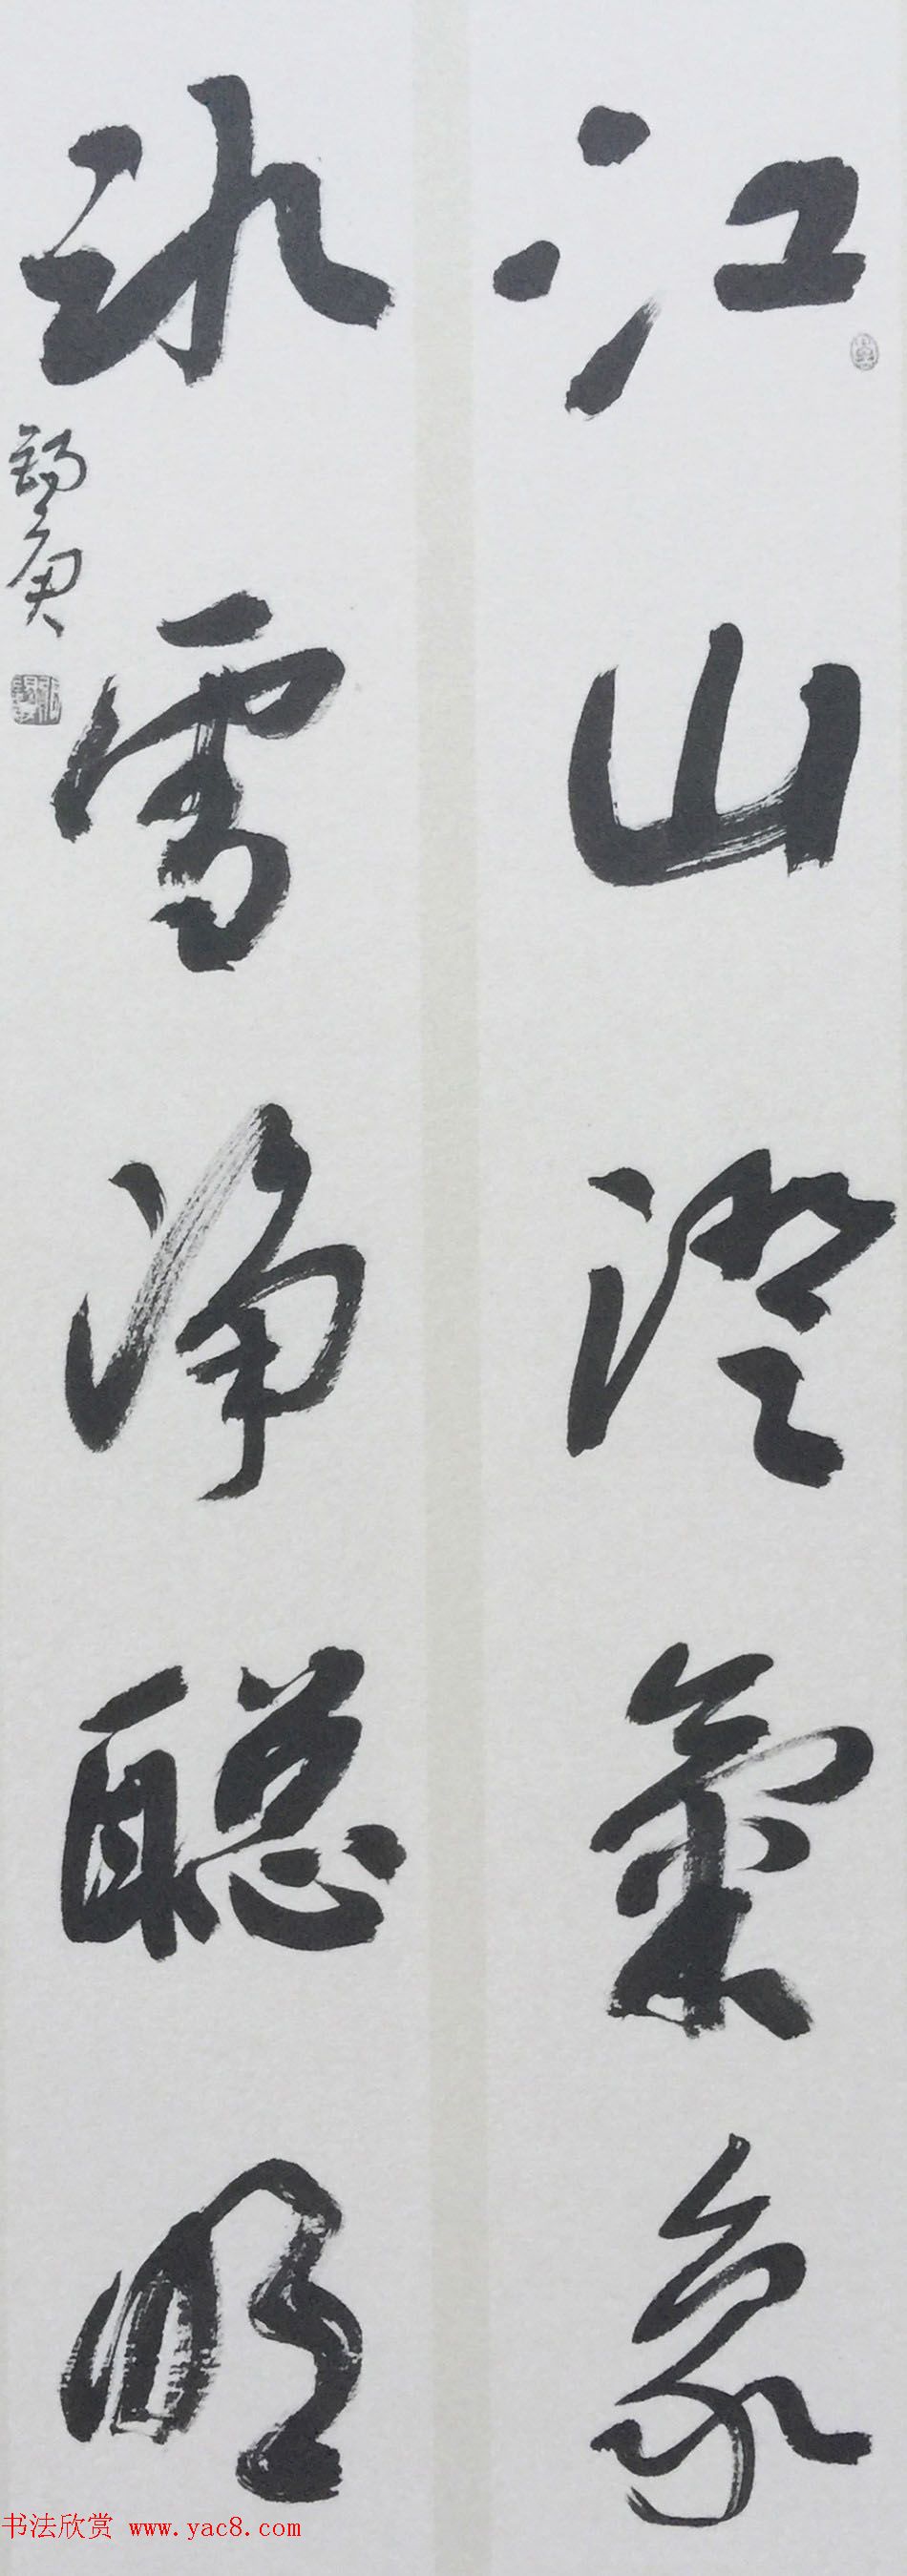 江山澄氣象
冰雪净聪明
錫庚
书法欣赏 www.yac8.com